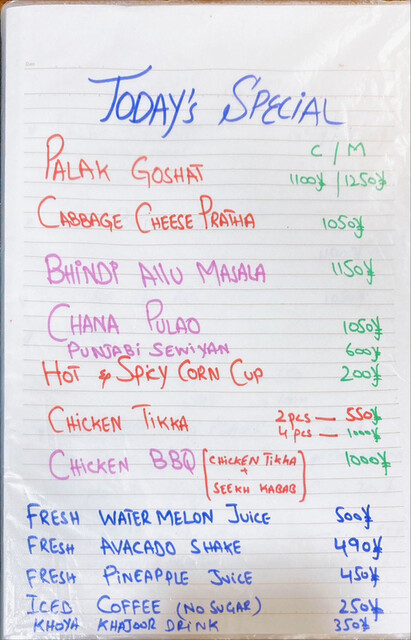 TODAY'S SPECIAL
C / M
PALAK GOSHAT 1100¥ / 1250¥
CABBAGE CHEESE PRATHA 1050¥
BHINDI AllU MASALA 1150¥
CHANA PULAO 1050¥
PUNJABI SEWIYAN 600¥
HOT & SPICY CORN CUP 200¥
CHICKEN TIKKA 2 pcs — 550¥
4 pcs — 1000¥
CHICKEN BBQ [CHICKEN TIKKA + SEEKH KABAB] 1000¥
FRESH WATER MELON JUICE 500¥
FRESH AVACADO SHAKE 490¥
FRESH PINEAPPLE JUICE 450¥
ICED COFFEE (NO SUGAR) 250¥
KHOYA KHAJOOR DRINK 350¥